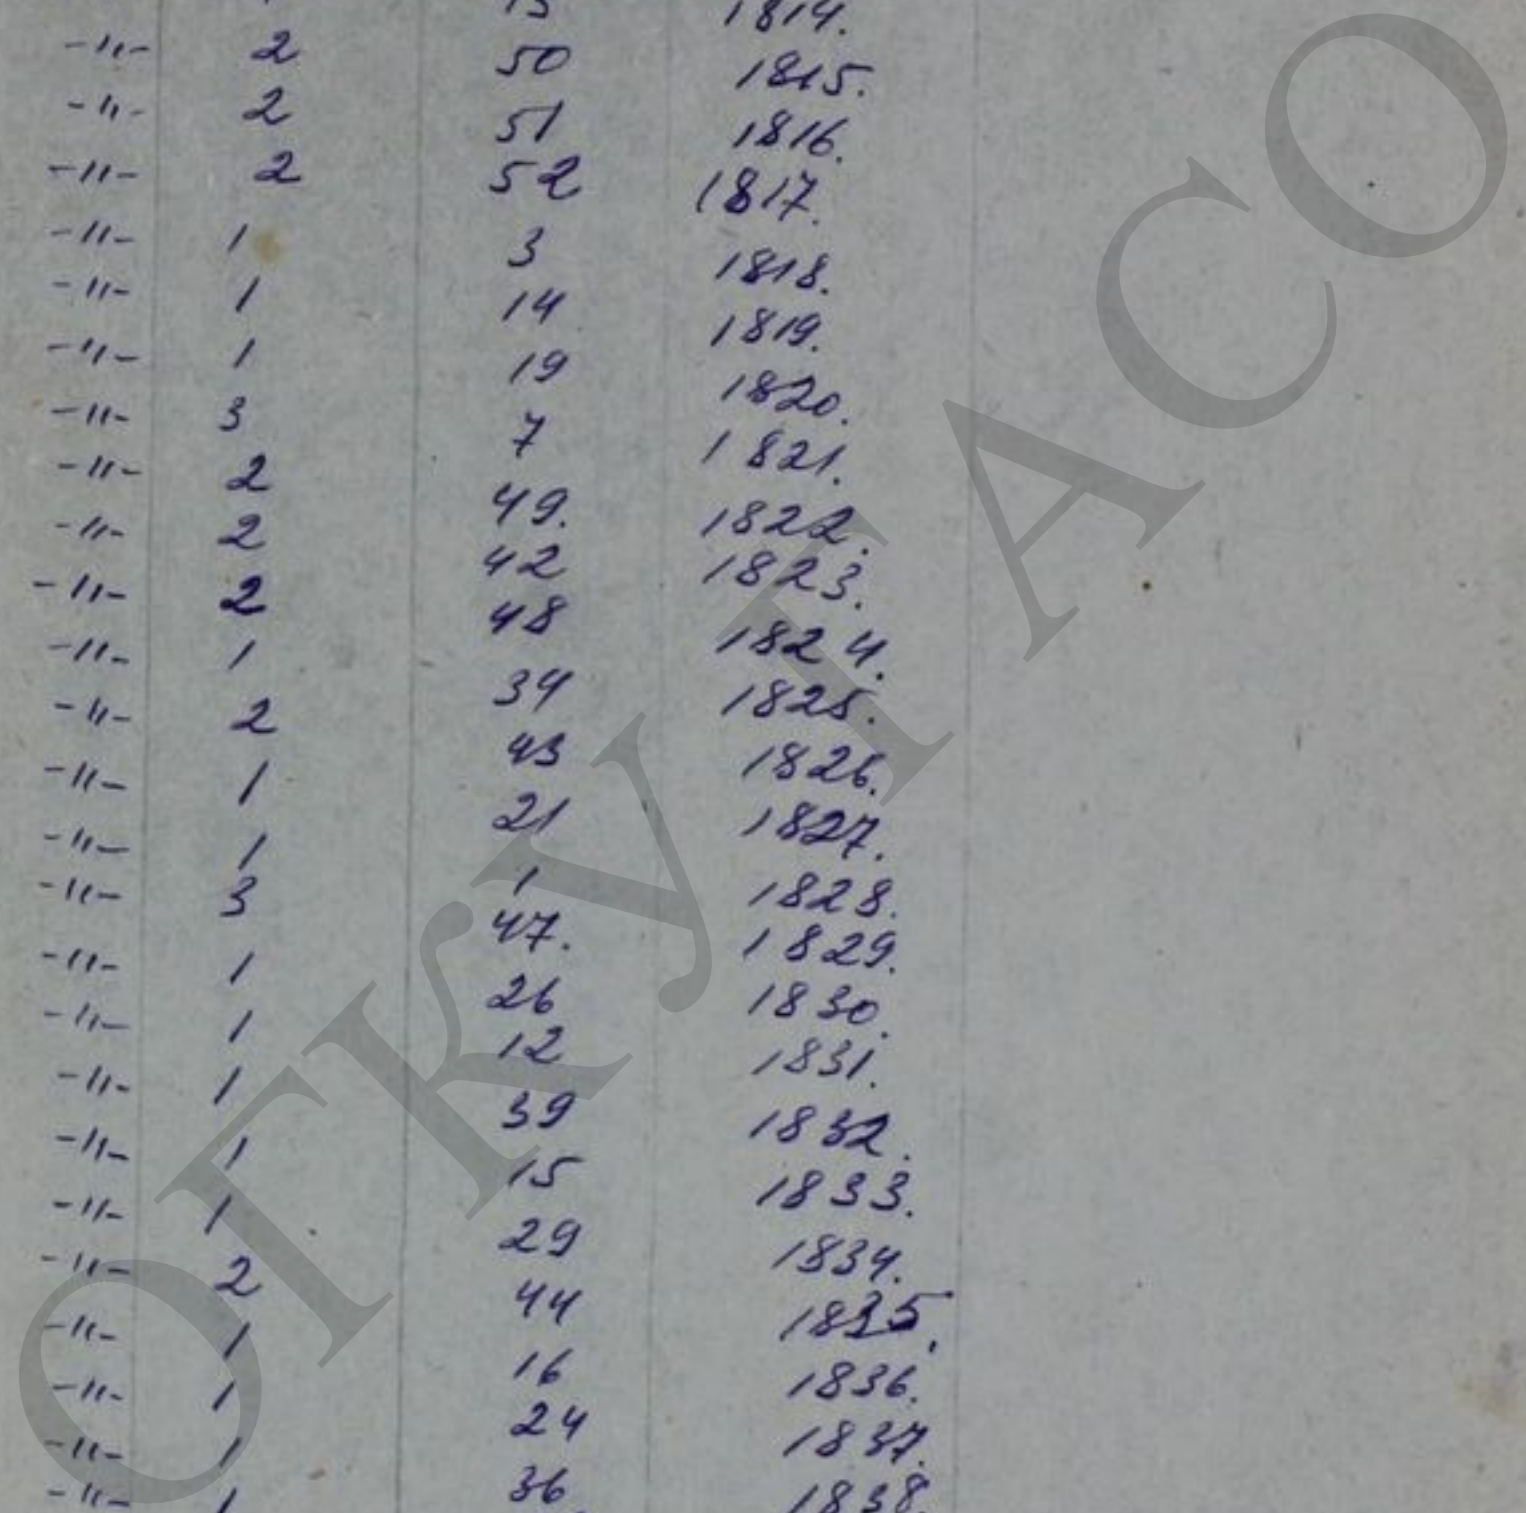 1814.
-"- 2 50 1815.
-"- 2 51 1816.
-"- 2 52 1817.
-"- 1 3 1818.
-"- 1 14 1819.
-"- 1 19 1820.
-"- 3 7 1821.
-"- 2 49. 1822.
-"- 2 42 1823.
-"- 2 48 1824.
-"- 1 34 1825.
-"- 2 43 1826.
-"- 1 21 1827.
-"- 1 1 1828.
-"- 3 47. 1829.
-"- 1 26 1830.
-"- 1 12 1831.
-"- 1 39 1832.
-"- 1 15 1833.
-"- 1 29 1834.
-"- 2 44 1835.
-"- 1 16 1836.
-"- 1 24 1837.
-"- 1 36 1838.
-"- 1
ОГКУ ГАСО